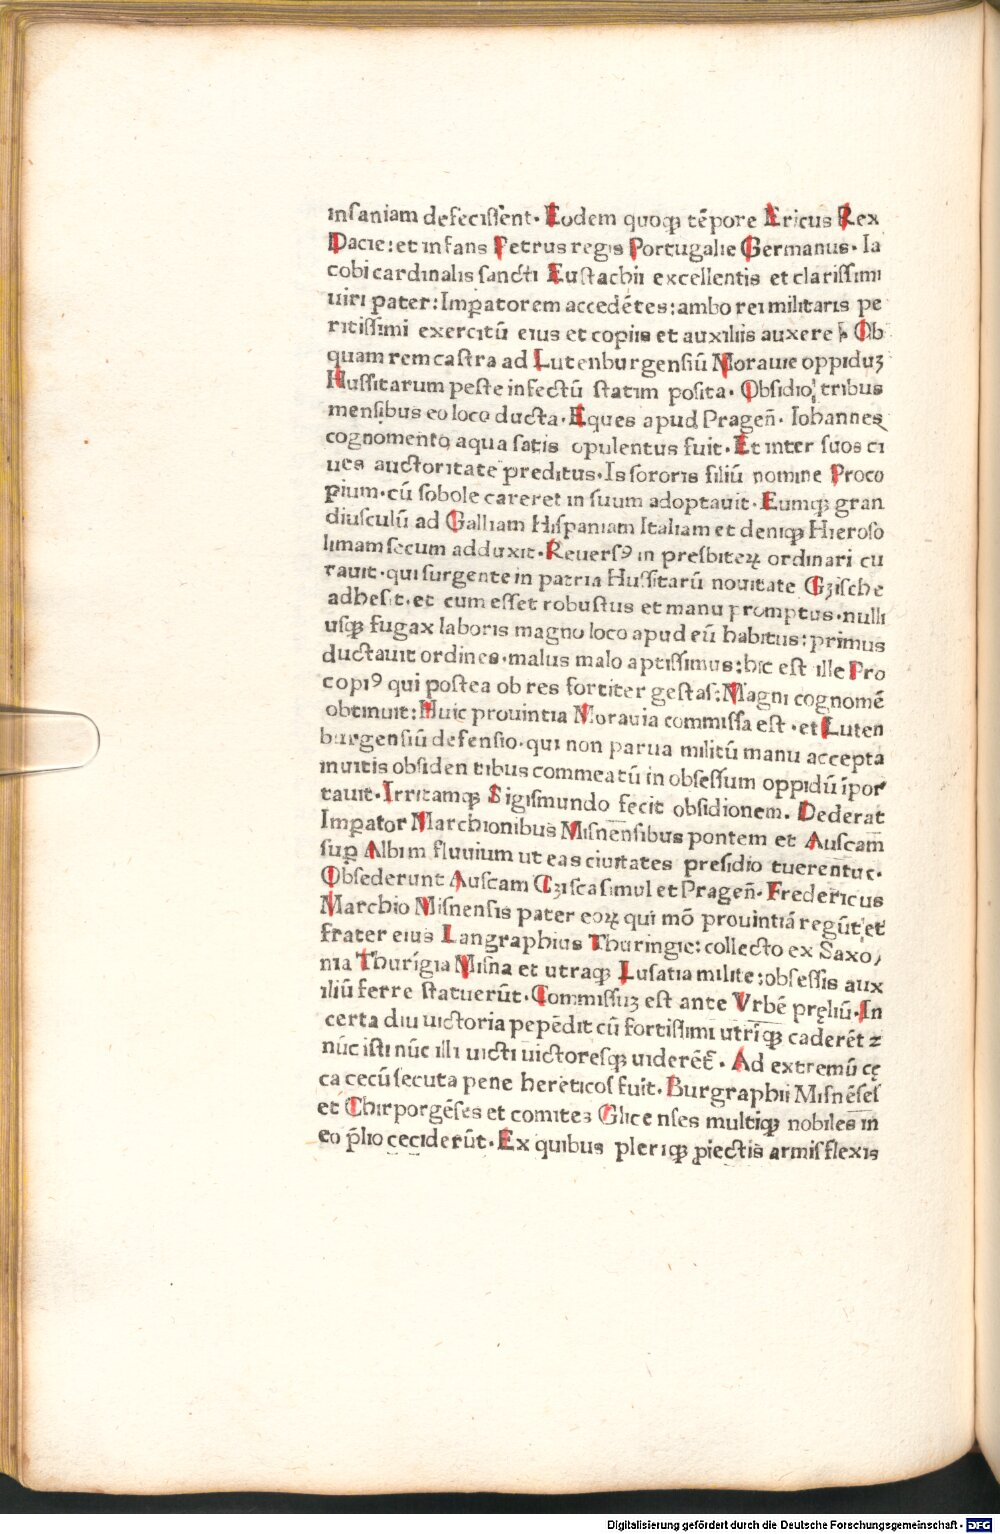 inſaniam defeciſſent. Eodem quoqꝫ tēpore Ericus Rex
Dacie: et infans Petrus regis Portugalie Germanus. Ia
cobi cardinalis ſancti Euſtachii excellentis et clariſſimi
uiri pater: Imꝑatorem accedētes: ambo rei militaris pe
ritiſſimi exercitū eius et copiis et auxiliis auxere. Ob
quam rem caſtra ad Lutenburgenſiū Morauie oppiduꝫ
Huſſitarum peſte infectū ſtatim poſita. Obſidio tribus
menſibus eo loco ducta. Eques apud Pragen̄. Iohannes
cognomento aqua ſatis opulentus fuit. Et inter ſuos ci
ues auctoritate preditus. Is ſororis filiū nomine Proco
pium. cū ſobole careret in ſuum adoptauit. Eumqꝫ gran
diuſculū ad Galliam Hiſpaniam Italiam et deniqꝫ Hieroſo
limam ſecum adduxit. Reuerſꝰ in preſbiteꝝ ordinari cu
rauit. qui ſurgente in patria Huſſitarū nouitate Gziſche
adheſit. et cum eſſet robuſtus et manu promptus. nulli
uſqꝫ fugax laboris magno loco apud eū habitus: primus
ductauit ordines. malus malo aptiſſimus: hic eſt ille Pro
copiꝰ qui poſtea ob res fortiter geſtaſ: Magni cognomē
obtinuit: Huic prouintia Morauia commiſſa eſt. et Luten
burgenſiū defenſio. qui non parua militū manu accepta
inuitis obſidentibus commeatū in obſeſſum oppidū īpor
tauit. Irritamqꝫ Sigiſmundo fecit obſidionem. Dederat
Imꝑator Marchionibus Miſnenſibus pontem et Auſcam
ſuꝑ Albim fluuium ut eas ciuitates preſidio tuerentur.
Obſederunt Auſcam Cziſca ſimul et Pragen̄. Fredericus
Marchio Miſnenſis pater eoꝝ qui mō prouintiā regūt et
frater eius Langraphius Thuringie: collecto ex Saxo/
nia Thurīgia Miſna et utraqꝫ Luſatia milite: obſeſſis aux
iliū ferre ſtatuerūt. Commiſſuꝫ eſt ante Vrbē pręliū. In
certa diu uictoria pepēdit cū fortiſſimi utrīqꝫ caderēt ⁊
nūc iſti nūc illi uicti uictoreſqꝫ uiderēt̄. Ad extremū cę
ca cecū ſecuta pene hereticoſ fuit. Burgraphii Miſnēſeſ
et Chirporgēſes et comiteꝫ Glicenſes multiqꝫ nobiles in
eo p̄lio ceciderūt. Ex quibus pleriqꝫ ꝓiectis armiſ flexis
Digitalisierung gefördert durch die Deutsche Forschungsgemeinschaft - DFG